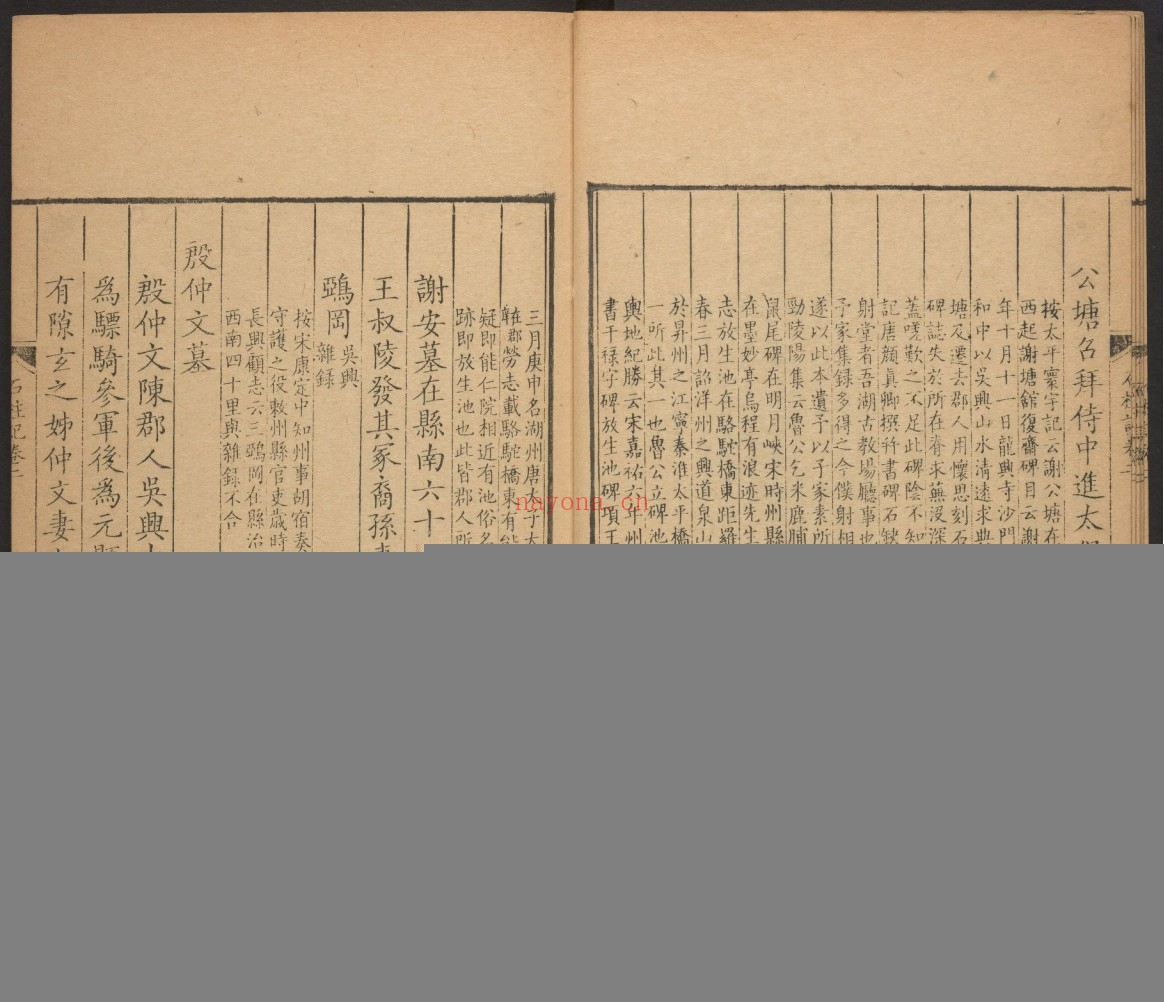 公塘召拜侍中進太
按太平寰宇記云謝公塘在
西起謝塘舘復齋碑目云謝
年十月十一日龍興寺沙門
和中以吳興山水清逺求典
塘及遷去郡人用懷思刻石
碑誌失於所在脊求蕪没深
蓋嗟歎之不足此碑陰不知
記唐顔眞卿撰幷書碑石缺
射堂者吾湖古教場廳事也
予家集録多得之今僕射相
遂以此本遺予以予家素所
勁陵陽集云魯公乞米鹿脯
鼠尾碑在明月峽宋時州縣
在墨妙亭烏程有浪迹先生
志放生池在駱駝橋東距羅
春三月詔洋州之興道泉山
於昇州之江寧秦淮太平橋
一所此其一也魯公立碑池
輿地紀勝云宋嘉祐六年州
書干禄字碑放生池碑項王
三月庚申名湖州唐太子太
在郡勞志載駱駝橋東有
疑即能仁院相近有池俗名
跡即放生池也此皆郡人所
謝安墓在縣南六十
王叔陵發其冢裔孫
鵶岡
吳興
雜録
按宋康定中知州事胡宿奏
守護之役敕州縣官吏歳時
長興顧志云三鵶岡在縣治
西南四十里與雜録不合
殷仲文墓
殷仲文陳郡人吳興
爲驃騎參軍後爲元
有隙玄之姊仲文妻
石柱記卷二
nayona.cn